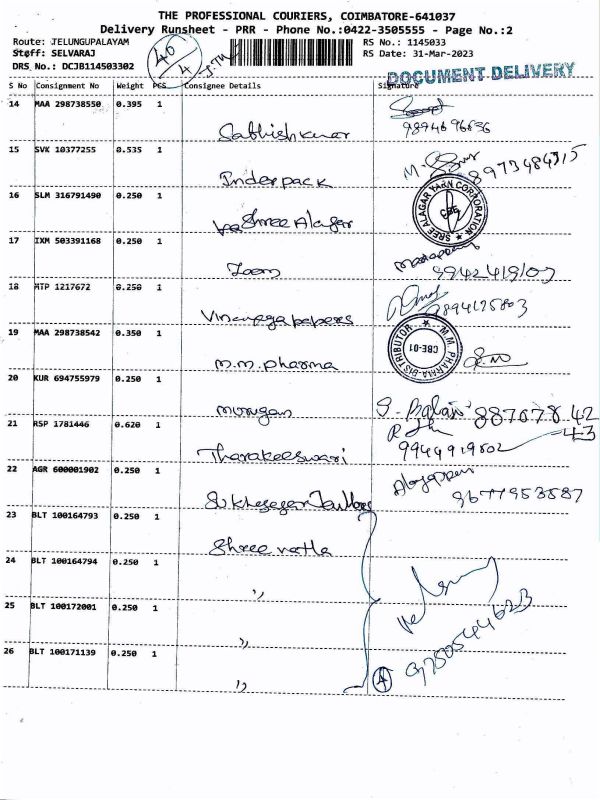 THE PROFESSIONAL COURIERS, COIMBATORE-641037
Delivery Runsheet - PRR - Phone No.:0422-3505555 - Page No.:2
Route: TELUNGUPALAYAM
Staff: SELVARAJ
DRS No.: DCJB114503302
RS No.: 1145033
RS Date: 31-Mar-2023
DOCUMENT DELIVERY
S No Consignment No Weight PCS Consignee Details Signature
14 MAA 298738550 0.395 1
9894696636
15 SVK 10377255 0.535 1
Inderpack
8973484315
16 SLM 316791490 0.250 1
Shree Alagar
SREE ALAGAR YARN CORPORATION
CBE
17 IXM 503391168 0.250 1
Zoom
9942419107
18 MTP 1217672 0.250 1
Vinayaga papers
19 MAA 298738542 0.350 1
M.M. pharma
M.M. PHARMA DISTRIBUTOR
CBE-01
20 KUR 694755979 0.250 1
Murugan
S. Balaji 8870787842
21 RSP 1781446 0.620 1
43
Tharakeeswari 9944919802
22 AGR 600001902 0.250 1
9677953587
23 BLT 100164793 0.250 1
24 BLT 100164794 0.250 1
"
25 BLT 100172001 0.250 1
"
26 BLT 100171139 0.250 1
"
4
9750544623